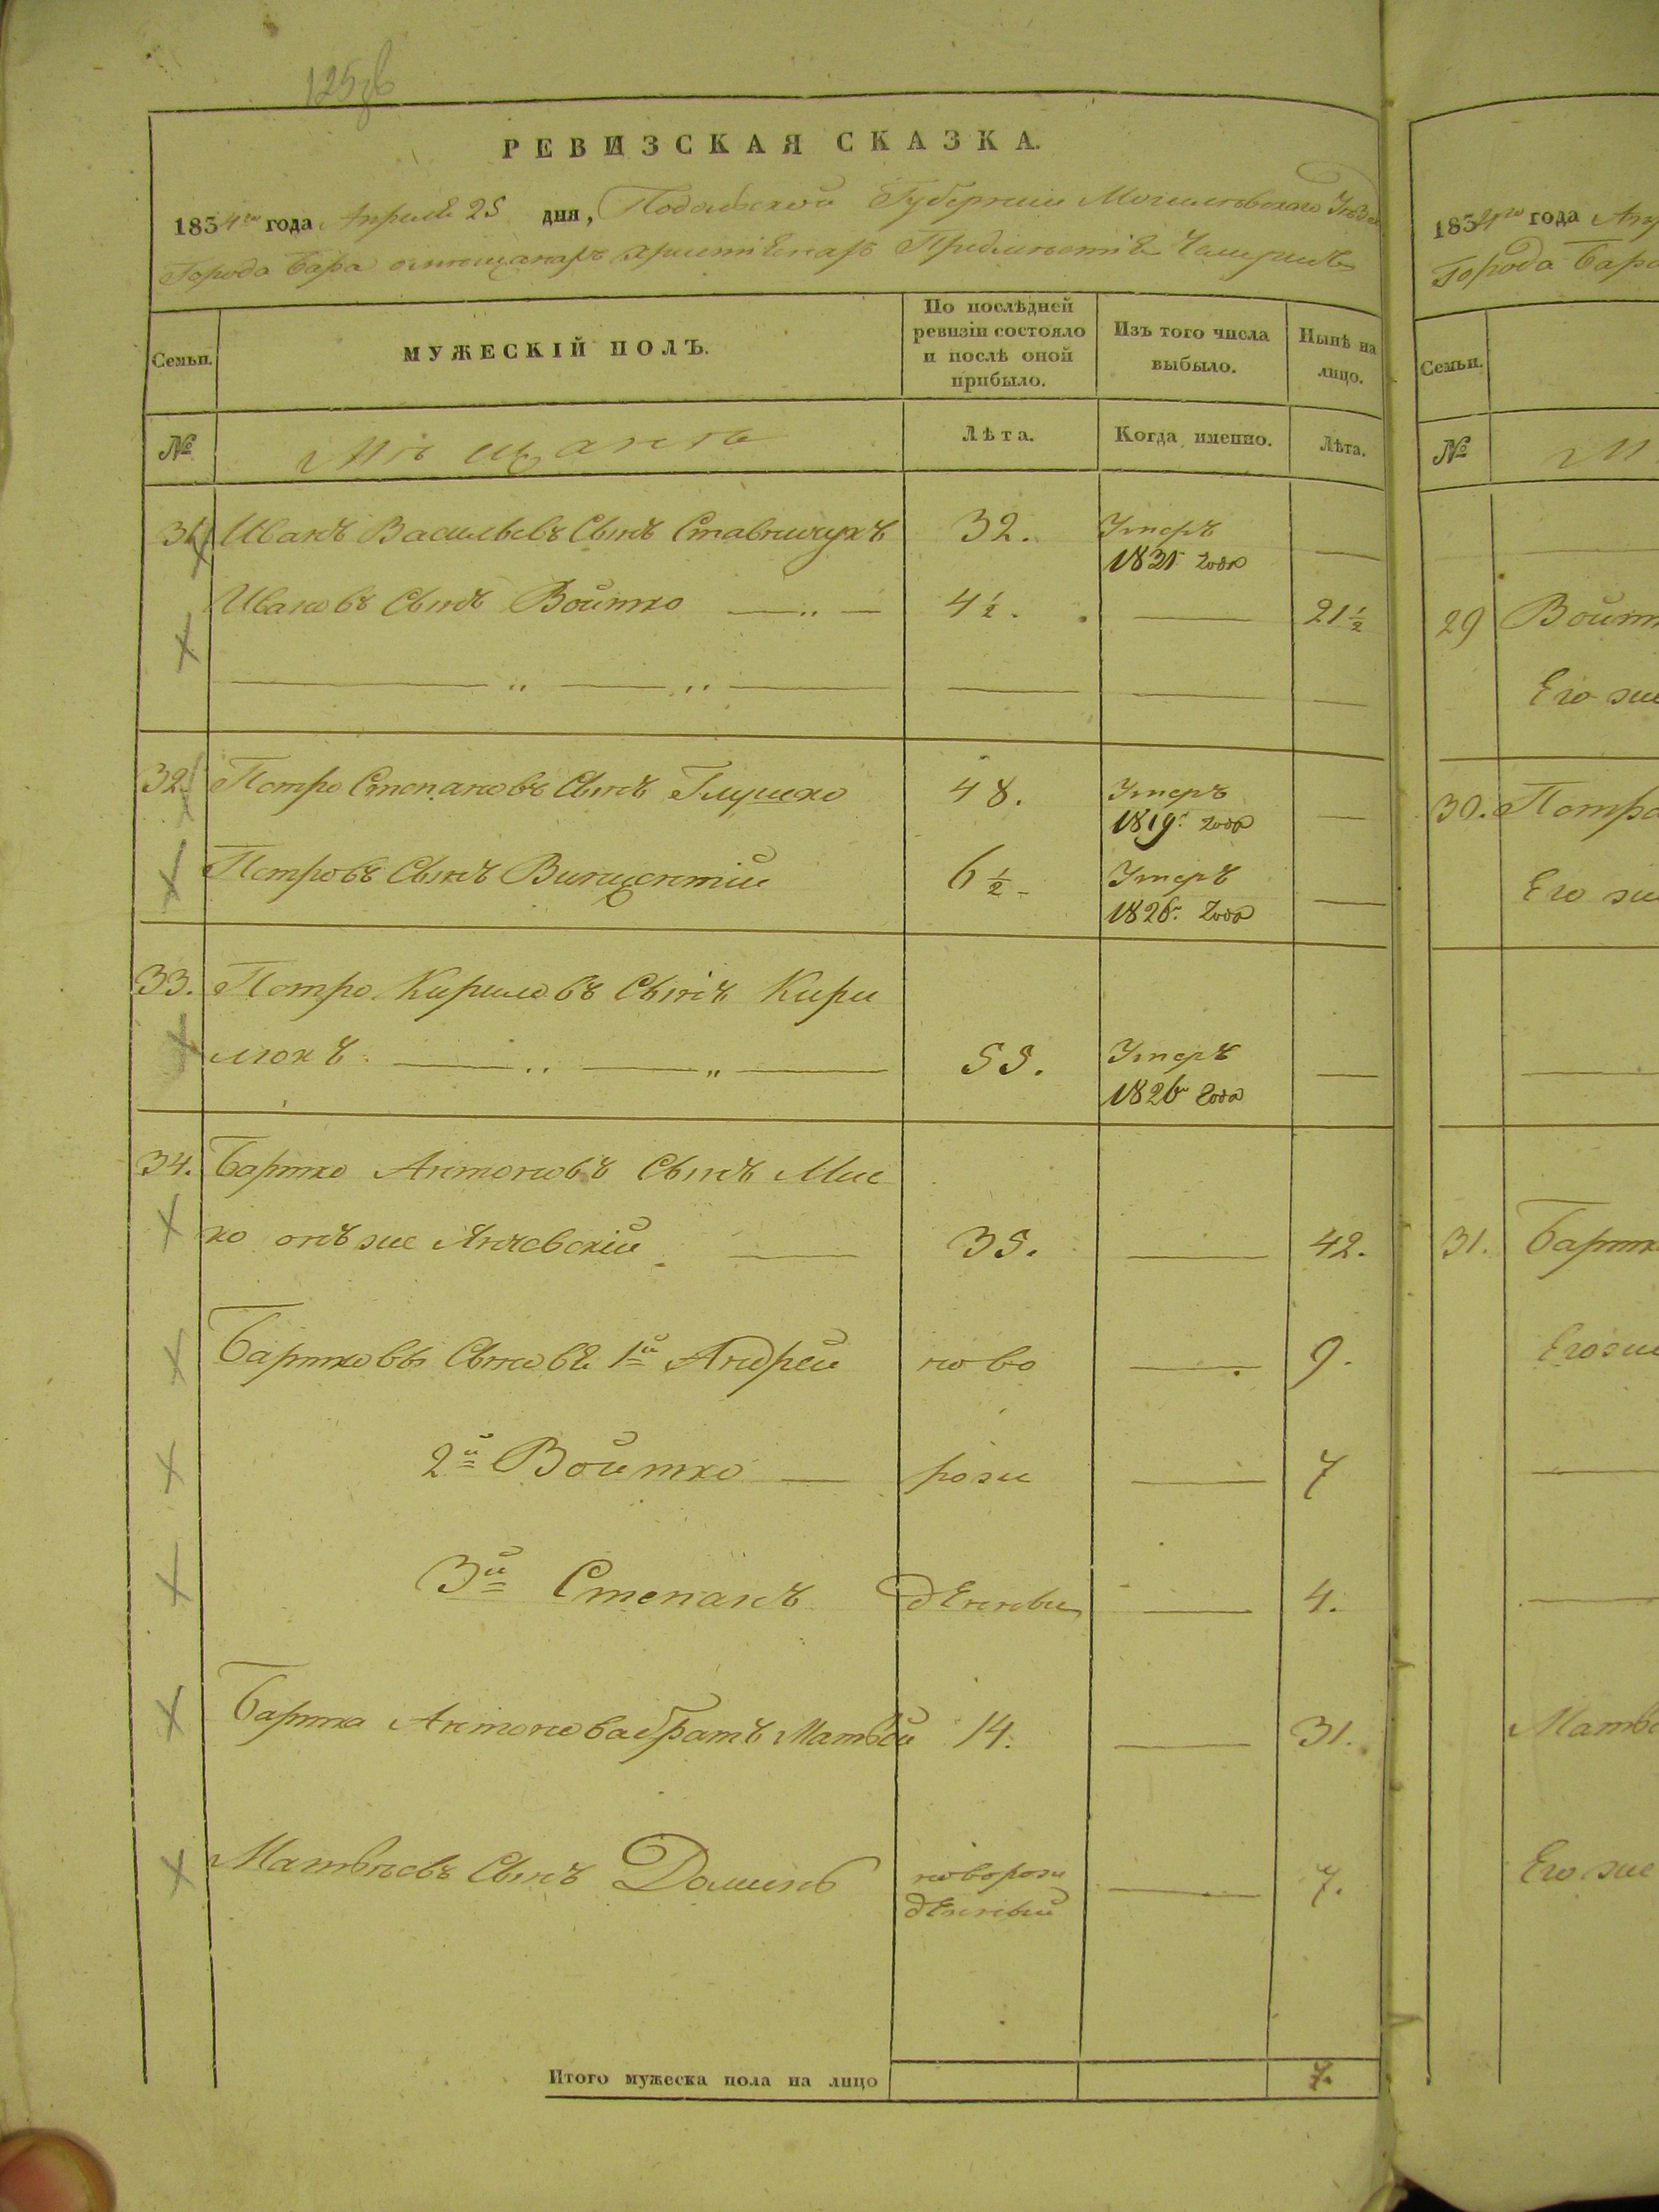 125об
РЕВИЗСКАЯ СКАЗКА.
1834го года Апреля 25 дня, Подольской Губернии Могилевского Уезда
Города Бара о мещанахъ христіянахъ Предместія
Семьи.
МУЖЕСКІЙ ПОЛЪ.
По послѣдней ревизіи состояло и послѣ оной прибыло.
Изъ того числа выбыло.
Нынѣ на лицо.
№
Мѣщане
Лѣта.
Когда именно.
Лѣта.
31. Иванъ Васильевъ Сынъ Ставничукъ 32. Умеръ
1831 года
Ивановъ Сынъ Войтко 4½. 21½
32. Петро Степановъ Сынъ Глушко 48. Умеръ
1819. года
Петровъ Сынъ Винцентій 6½ Умеръ
1826. года
33. Петро Кириловъ Сынъ Кири
люкъ 55. Умеръ
1826 года
34. Бартко Антоновъ Сынъ Мис
ко онъ же Янчевскій 35. 42.
Бартковы Сыновья 1й Андрей ново 9.
2й Войтко рожи 7
3й Степанъ дЕнные 4.
Бартка Антонова братъ Матвей 14. 31.
Матвѣевъ Сынъ новорож
дЕнный 7.
Итого мужеска пола на лицо 7.
1834го года Апр
Города Бара
Семьи.
№
М
29 Войт
Его же
30. Петро
Его же
31. Бартк
Его же
Матве
Его же